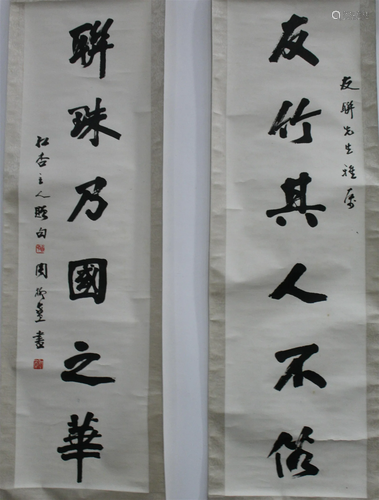 友聯先生雅屬
友竹其人不俗
聯珠乃國之華
紅杏主人題句
書